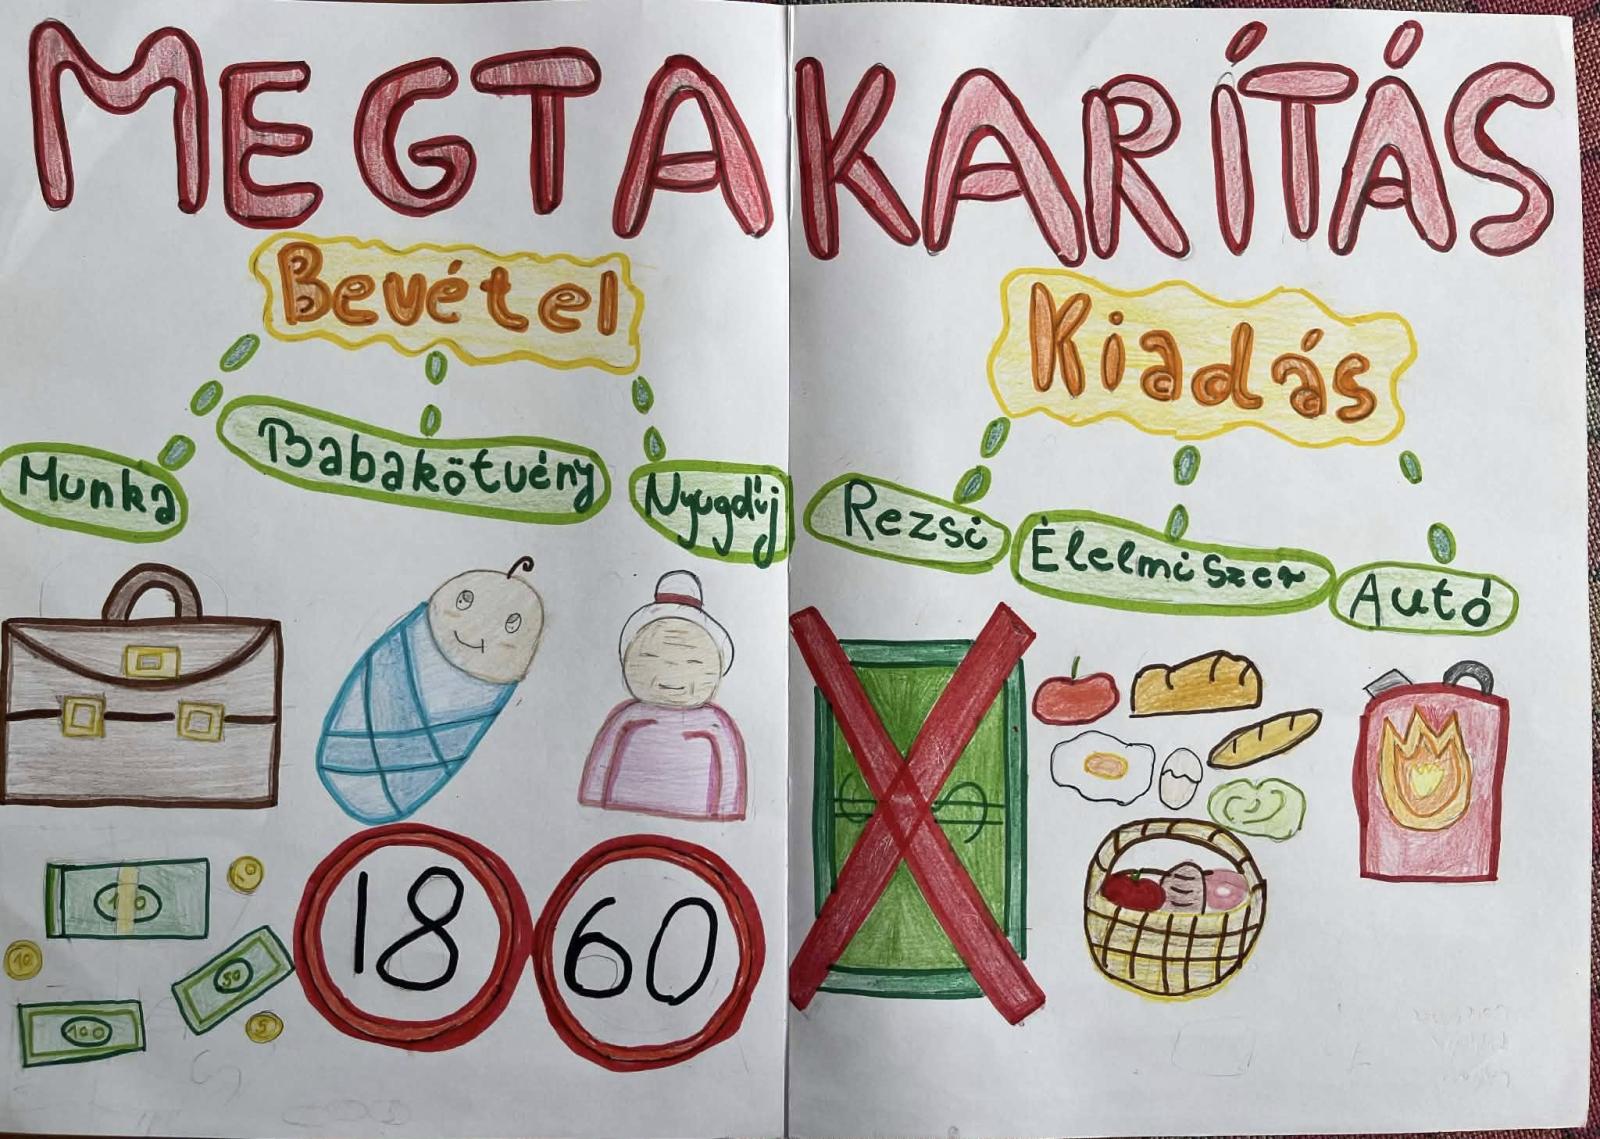 MEGTAKARÍTÁS
Bevétel
Kiadás
Munka
Babakötvény
Nyugdíj
Rezsi
Élelmiszer
Autó
100
10
10
50
100
5
18
60
$